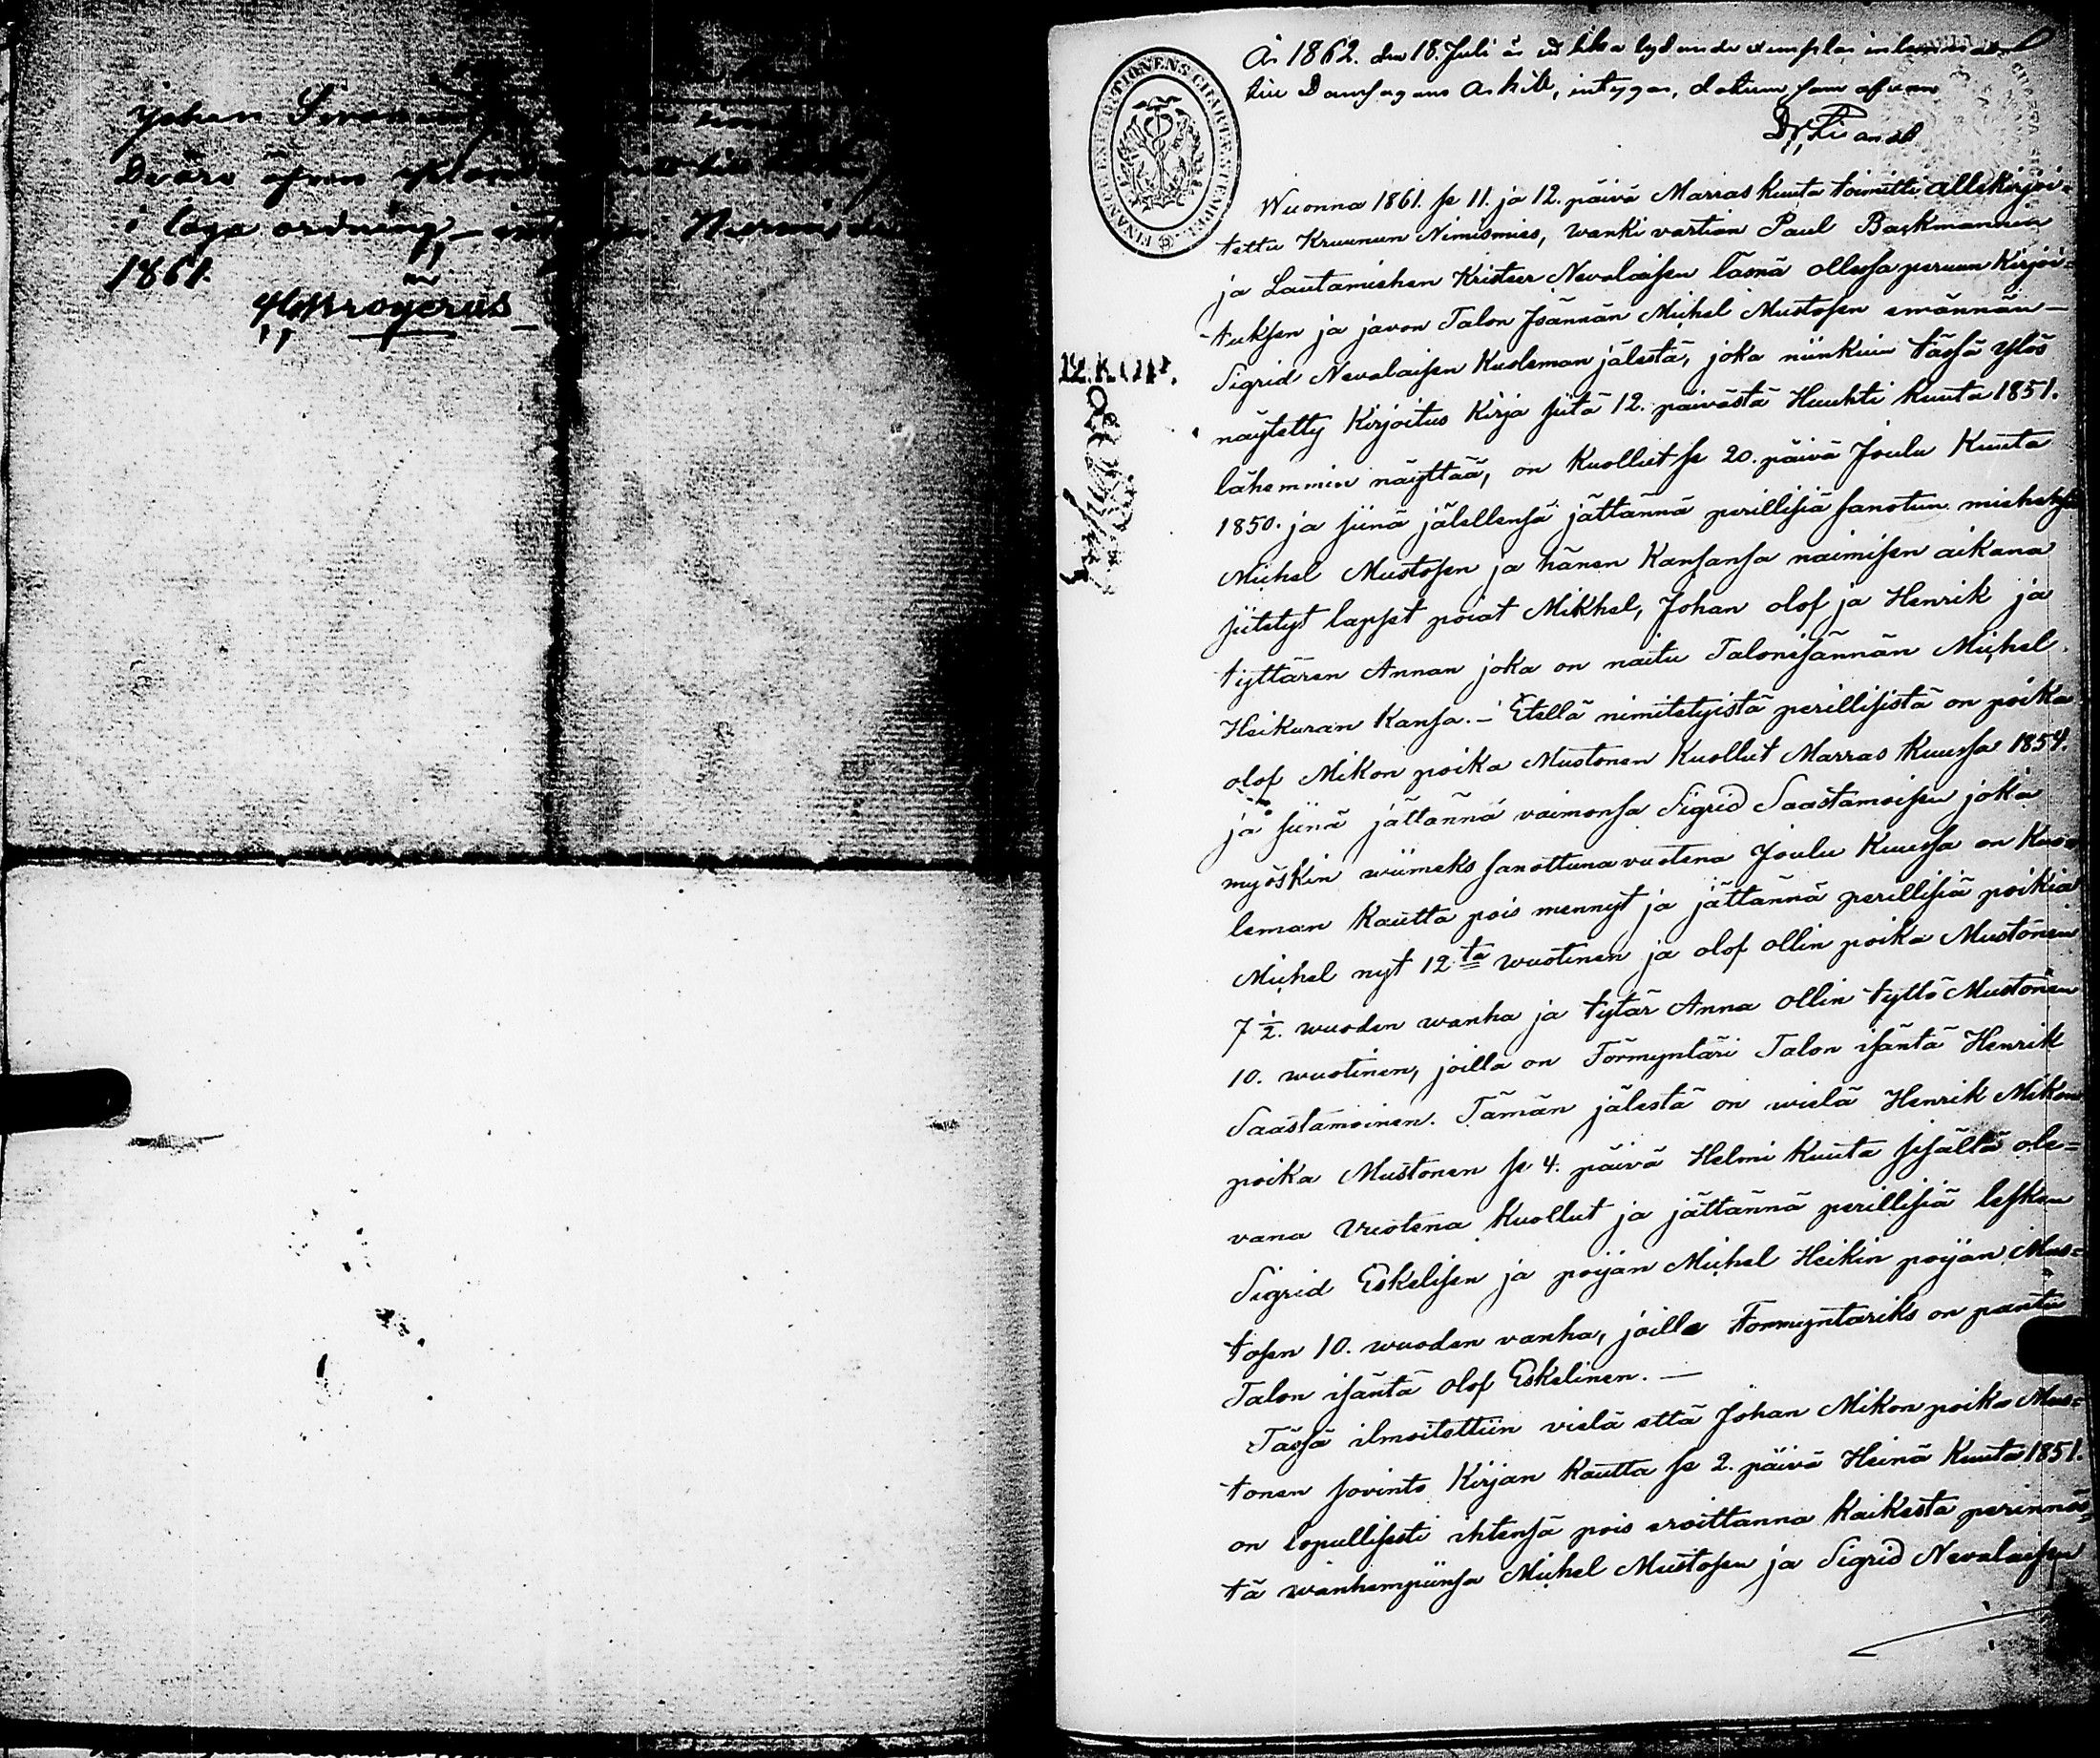 Johan
i laga ordning,
1861.
År 1862. den 18. Juli är ett lika lydande exemplar inlemnadt
till Domsagans Arkiv, intygar, datum som ofvan
FINANCE EXPEDITIONENS CHARTÆ STEMPEL
Wuonna 1861. se 11. ja 12. päivä Marras kuuta toimitti allekirjoi=
tettu Kruunun Nimismies, wanki vartian Paul Backmannin
ja Lautamiehen Krister Nevalaisen läsnä ollessa perunn Kirjoi=
tuksen ja javon Talon Isännän Michel Mustosen emännän
Sigrid Nevalaisen Kuoleman jälestä, joka niinkuin tässä ylös
näytetty Kirjoitus Kirja siitä 12. päivästä Huuhti kuuta 1851.
12. KOP.
lähemmin näyttää, on kuollut se 20. päivä Joulu Kuuta
1850. ja siinä jälellensä jättännä perillisiä sanotun miehensä
Michel Mustosen ja hänen Kansansa naimisen aikana
siitetyt lapset poiat Mikhel, Johan olof ja Henrik ja
tyttären Annan joka on naitu Talonisännän Michel
Heikuran Kansa. – Etellä nimitetyistä perillisistä on poika
olof Mikon poika Mustonen Kuollut Marras kuussa 1854.
ja siinä jättännä vaimonsa Sigrid Saastamoisen joka
myöskin wiimeks sanottuna vuotena Joulu Kuussa on Kuo=
leman kautta pois mennyt ja jättännä perillisiä poikia
Michel nyt 12ta wuotinen ja olof ollin poika Mustonen
7 ½. wuoden wanha ja tytär Anna ollin tyttö Mustonen
10. wuotinen, joilla on Förmyntäri Talon isäntä Henrik
Saastamoinen. Tämän jälestä on wielä Henrik Mikon
poika Mustonen se 4. päivä Helmi kuuta sisällä ole=
vana vuotena kuollut ja jättännä perillisiä lesken
Sigrid Eskelisen ja poijan Michel Heikin poijan Mus=
tosen 10. wuoden vanha, joilla Formyntäriks on pantu
Talon isäntä olof Eskelinen. —
Tässä ilmoitettiin vielä että Johan Mikon poika Mus=
tonen sovinto Kirjan kautta se 2. päivä Heinä Kuuta 1851.
on lopullisesti ihtensä pois eroittanna kaikesta perinnös=
tä wanhempiinsa Michel Mustosen ja Sigrid Nevalaisen